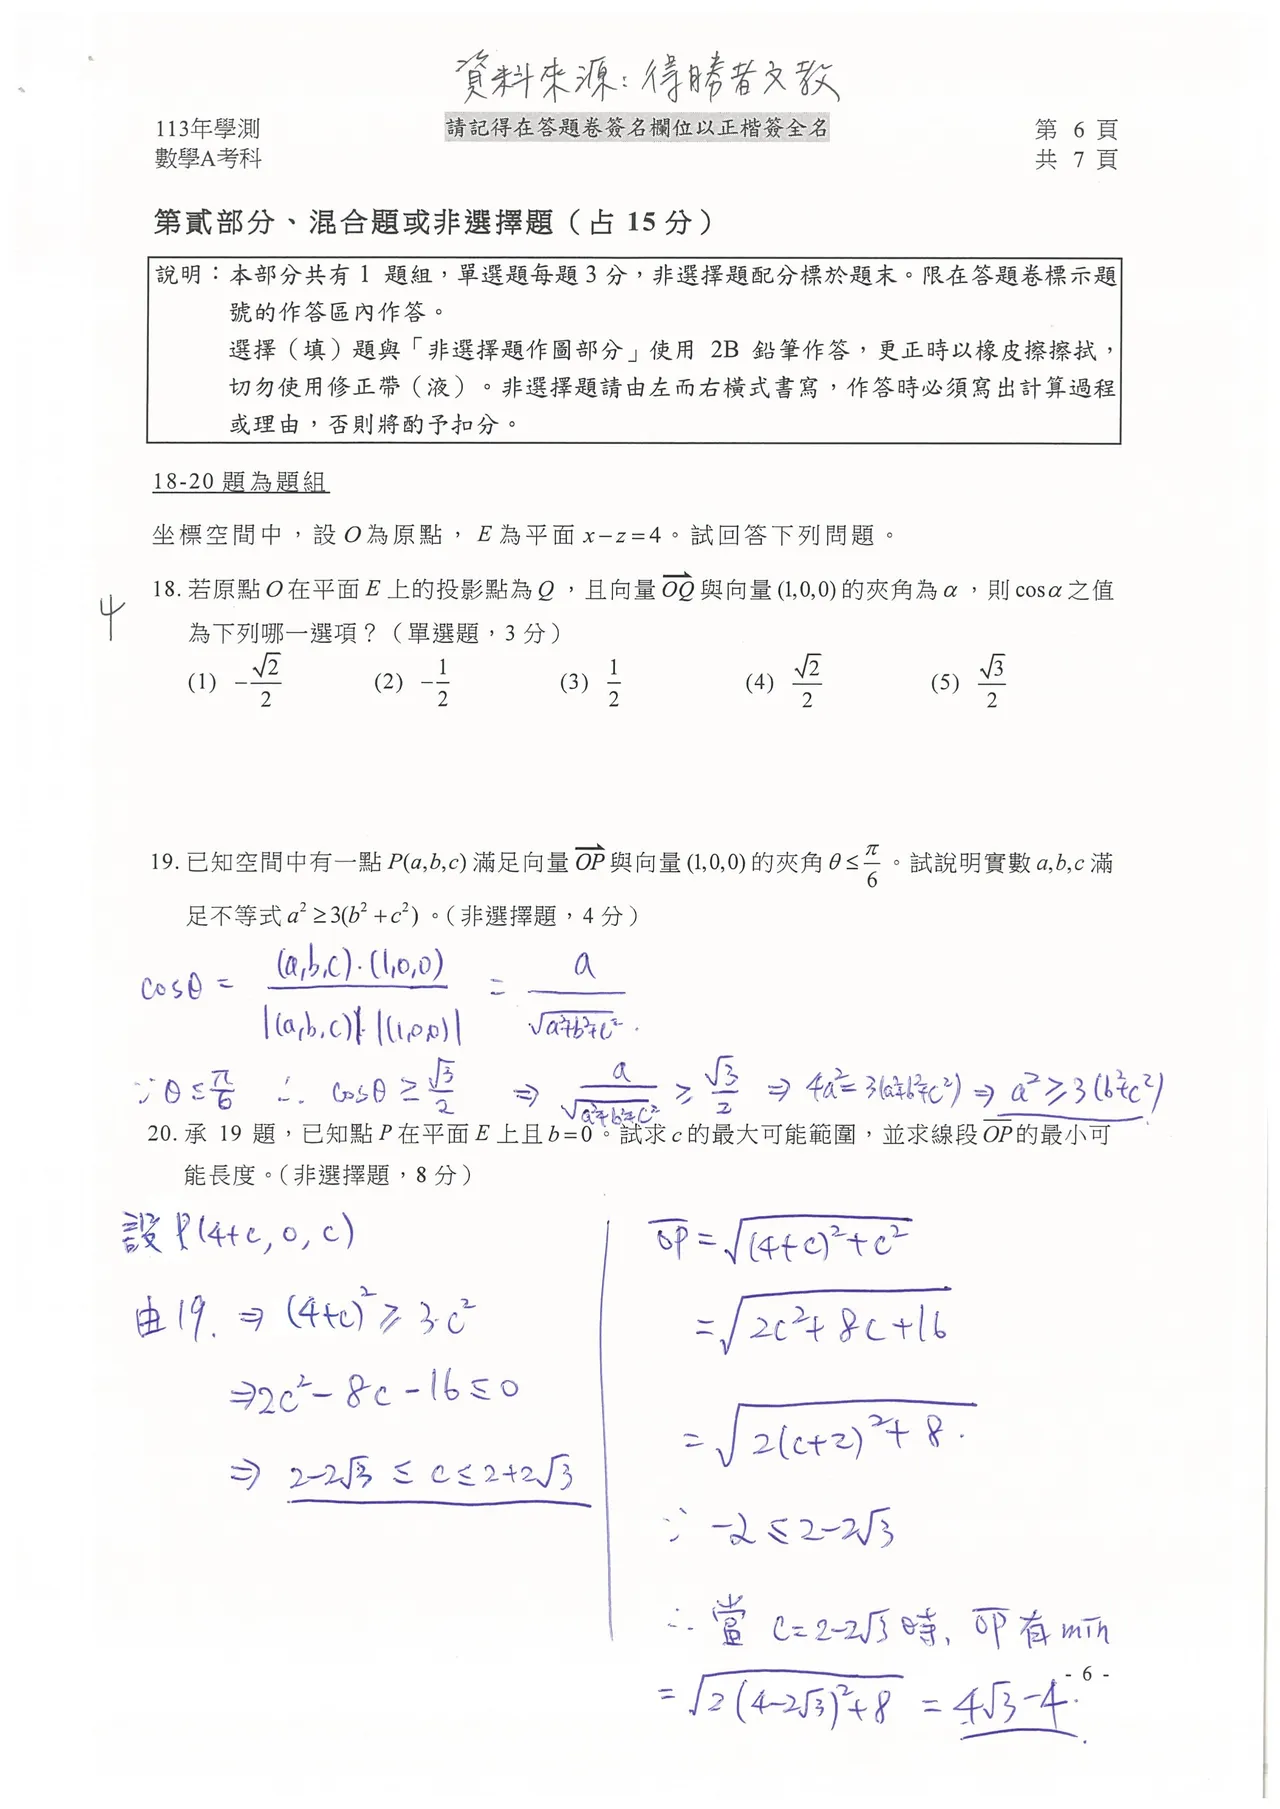 資料來源：得勝者文教
113年學測
請記得在答題卷簽名欄位以正楷簽全名
第 6 頁
數學A考科
共 7 頁
第貳部分、混合題或非選擇題（占 15 分）
說明：本部分共有 1 題組，單選題每題 3 分，非選擇題配分標於題末。限在答題卷標示題
號的作答區內作答。
選擇（填）題與「非選擇題作圖部分」使用 2B 鉛筆作答，更正時以橡皮擦擦拭，
切勿使用修正帶（液）。非選擇題請由左而右橫式書寫，作答時必須寫出計算過程
或理由，否則將酌予扣分。
18-20 題為題組
坐標空間中，設 O 為原點， E 為平面 x−z=4。試回答下列問題。
4
18. 若原點 O 在平面 E 上的投影點為 Q ，且向量 OQ 與向量 (1,0,0) 的夾角為 α ，則 cosα 之值
為下列哪一選項？（單選題，3 分）
(1) −√2/2 (2) −1/2 (3) 1/2 (4) √2/2 (5) √3/2
19. 已知空間中有一點 P(a,b,c) 滿足向量 OP 與向量 (1,0,0) 的夾角 θ ≤ π/6 。試說明實數 a,b,c 滿
足不等式 a² ≥ 3(b² + c²) 。（非選擇題，4 分）
cosθ = (a,b,c)·(1,0,0) / |(a,b,c)|·|(1,0,0)| = a / √a²+b²+c² .
∵ θ ≤ π/6 ∴ cosθ ≥ √3/2 ⇒ a/√a²+b²+c² ≥ √3/2 ⇒ 4a² = 3(a²+b²+c²) ⇒ a² ≥ 3(b²+c²)
20. 承 19 題，已知點 P 在平面 E 上且 b=0 。試求 c 的最大可能範圍，並求線段 OP 的最小可
能長度。（非選擇題，8 分）
設 P(4+c, 0, c)
由19. ⇒ (4+c)² ≥ 3·c²
⇒ 2c² − 8c − 16 ≤ 0
⇒ 2−2√3 ≤ c ≤ 2+2√3
OP = √(4+c)²+c²
= √2c²+8c+16
= √2(c+2)²+8 .
∵ −2 ≤ 2−2√3
∴ 當 c=2−2√3 時, OP 有 min
- 6 -
= √2(4−2√3)²+8 = 4√3−4.